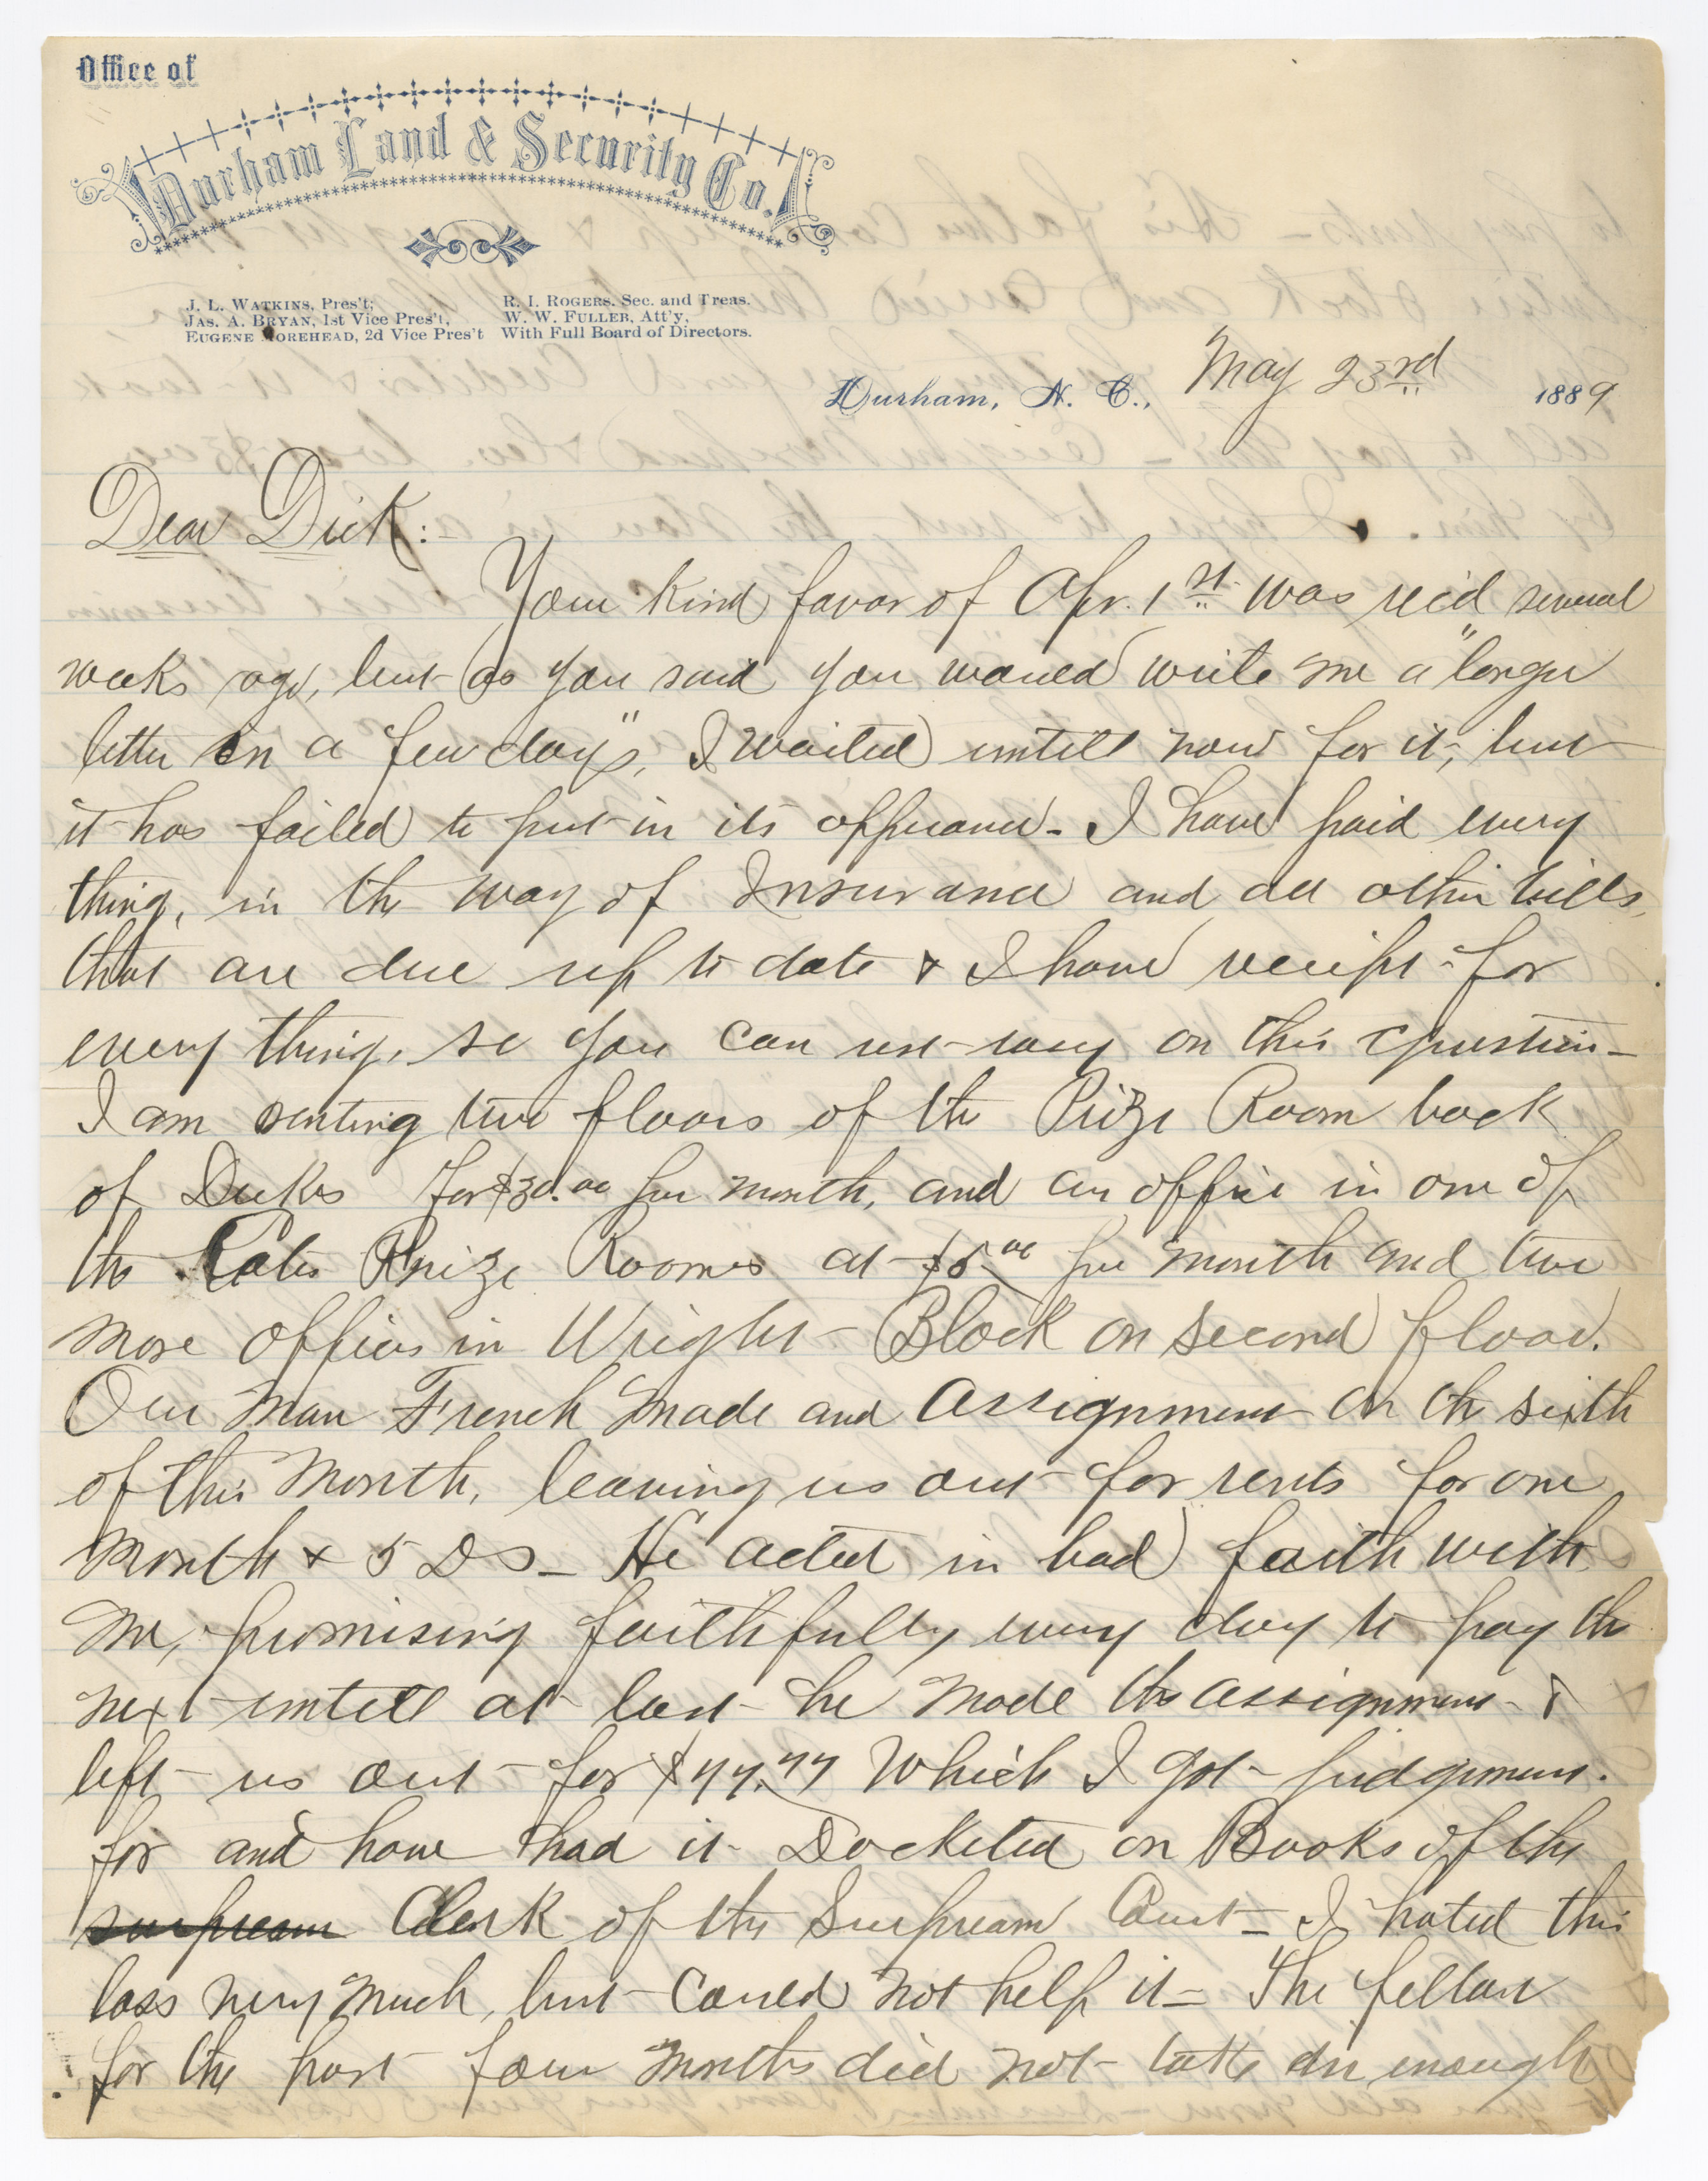 Office of
Durham Land & Security Co.
J. L. Watkins, Pres't;
Jas. A. Bryan, 1st Vice Pres't,
Eugene Morehead, 2d Vice Pres't
R. I. Rogers, Sec. and Treas.
W. W. Fuller, Att'y,
With Full Board of Directors.
Durham, N. C., May 23rd 1889
Dear Dick:
Your kind favor of Apr. 1st was rec'd several
weeks ago, but as you said you would write me a "longer
letter in a few days", I waited untill now for it, but
it has failed to put in its appearance - I have paid every
thing, in the way of Insurance and all other bills,
that are due up to date & I have receipt for
every thing, so you can rest easy on this question -
I am renting two floors of the Prize Room back
of Dukes for $30.00 per month, and an office in one of
the Prize Rooms at $5.00 per month and two
more offices in Wright Block on second floor.
Our man French made and assignment on the sixth
of this month, leaving us out for rents for one
month & 5 Ds - He acted in bad faith with
me, promising faithfully every day to pay the
next untill at last he made the assignment &
left us out for $44.44 which I got judgment
for and have had it Docketed on Books of the
surpream Clerk of the Surpream Court - I hated this
loss very much, but could not help it - The fellow
for the past four months did not take in enough